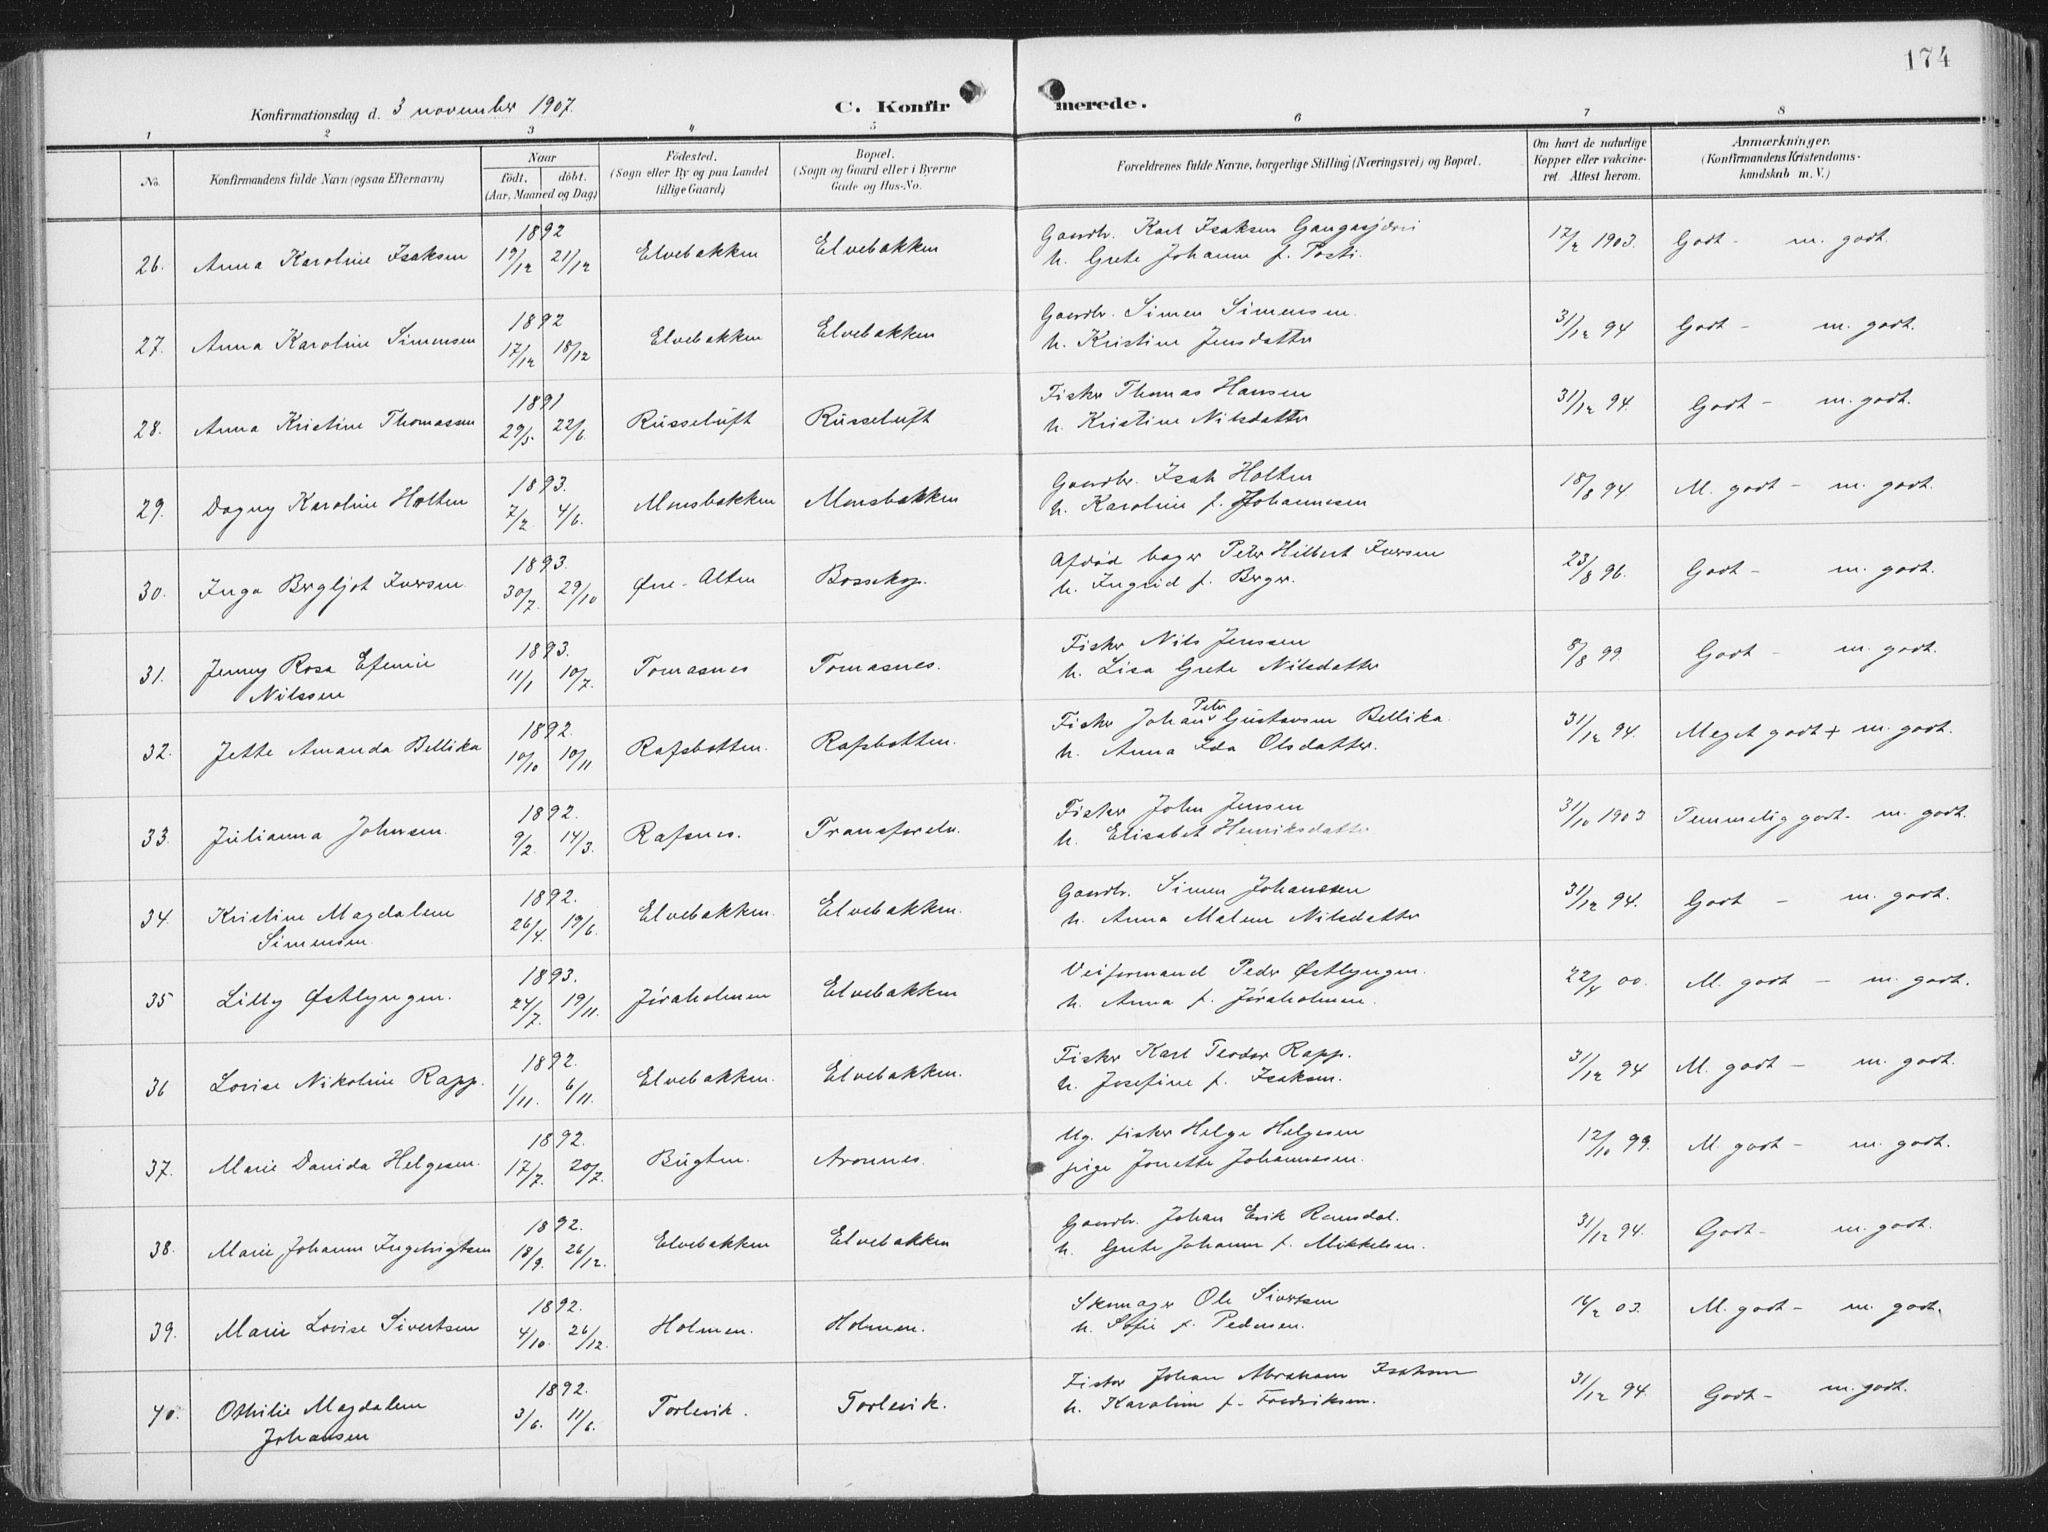 174
Konfirmationsdag d. 3 november 1907.
C. Konfirmerede.
1 2 3 4 5 6 7 8
No.
Konfirmandens fulde Navn (ogsaa Efternavn)
Naar
født. døbt.
(Aar, Maaned og Dag)
Fødested.
(Sogn eller By og paa Landet
tillige Gaard)
Bopæl.
(Sogn og Gaard eller i Byerne
Gade og Hus-No.
Forældrenes fulde Navne, borgerlige Stilling (Næringsvei) og Bopæl.
Om havt de naturlige
Kopper eller vaccine-
ret. Attest herom.
Anmerkninger.
(Konfirmandens Kristendoms-
kundskab m. V.)
26. Anna Karoline Isaksen 1892 19/12 21/12 Elvebakken Elvebakken Gaardbr. Karl Isaksen
h. Grete Johanne f. Posti. 17/2 1903. Godt - m. godt.
27. Anna Karoline Simensen 1892 17/12 18/12 Elvebakken Elvebakken Gaardbr. Simen Simensen.
h. Kristine Jensdatter 31/12 94 Godt - m. godt.
28. Anna Kristine Thomassen 1891 29/5 22/6. Russeluft Russeluft Fisker Thomas Hansen
h. Kristine Nilsdatter 31/12 94. Godt - m. godt.
29. Dagny Karoline Holten 1893. 7/2. 4/6. Monsbakken Monsbakken Gaardbr. Isak Holten
h. Karoline f. Johannesen 18/8 94. M. godt - m. godt.
30. Inga Bergljot Iversen. 1893. 30/7. 29/10 Øvre-Alten Bossekop. Afdød bager Peter Hilbert Iversen
h. Ingrid f. Berger. 23/8 96. Godt - m. godt.
31. Jenny Rosa Efenie
Nilssen 1893. 11/1 10/7. Tomasnes Tomasnes. Fisker Nils Jenssen
h. Lisa Grete Nilsdatter 8/8 99. Godt - m. godt.
32. Jette Amanda Bellika 1892. 10/10 10/11 Rafsbotten. Rafsbotten. Fisker Johan Peter Gustavsen Bellika.
h. Anna Ida Olsdatter. 31/12 94. Meget godt + m. godt.
33. Julianna Johnsen. 1892. 9/2. 14/3. Rafsnes. Transfarelv. Fisker John Jensen
h. Elisabet Henriksdatter 31/10 1903 Temmelig godt - m. godt.
34. Kristine Magdalene
Simensen. 1892. 26/4. 19/6. Elvebakken. Elvebakken. Gaardbr. Simen Johanssen
h. Anna Malene Nilsdatter 31/12 94. Godt - m. godt.
35 Lilly Østlyngen. 1893. 24/7. 19/11. Jøraholmen Elvebakken Veiformand Peder Østlyngen.
h. Anna f. Jøraholmen. 22/4 00. M. godt - m. godt.
36 Lovise Nikoline Rapp. 1892. 1/11. 6/11. Elvebakken. Elvebakken. Fisker Karl Teodor Rapp.
h. Josefine f. Isaksen. 31/12 94 M. godt - m. godt.
37. Marie Davida Helgesen. 1892. 17/7. 20/7. Bugten. Aronnes. Ug. fisker Helge Helgesen
pige Jonette Johannessen. 12/10 99. M. godt - m. godt.
38. Marie Johanne Ingebrigtsen 1892. 18/9. 26/12. Elvebakken Elvebakken Gaardbr. Johan Erik Romsdal.
h. Grete Johanne f. Mikkelsen. 31/12 94. Godt - m. godt.
39. Marie Lovise Sivertsen 1892. 4/10. 26/12. Holmen. Holmen. Skomager Ole Sivertsen
h. Sofie f. Pedersen. 16/2 03. M. godt - m. godt.
40. Othilie Magdalene
Johansen 1892. 3/6. 11/6. Torlevik. Torlevik. Fisker Johan Abraham Isaksen
h. Karoline f. Fredriksen. 31/12 94. Godt - m. godt.